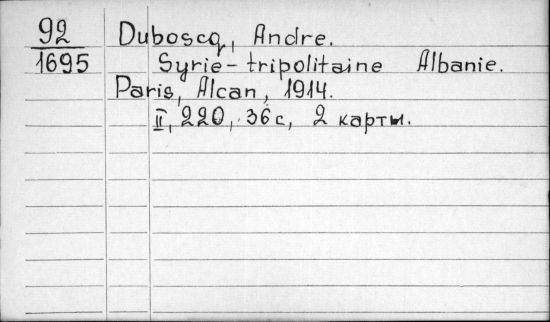 92 Duboscq, Andre.
1695 Syrie-tripolitaine Albanie.
Paris, Alcan, 1914.
II, 220, 36 с, 2 карты.